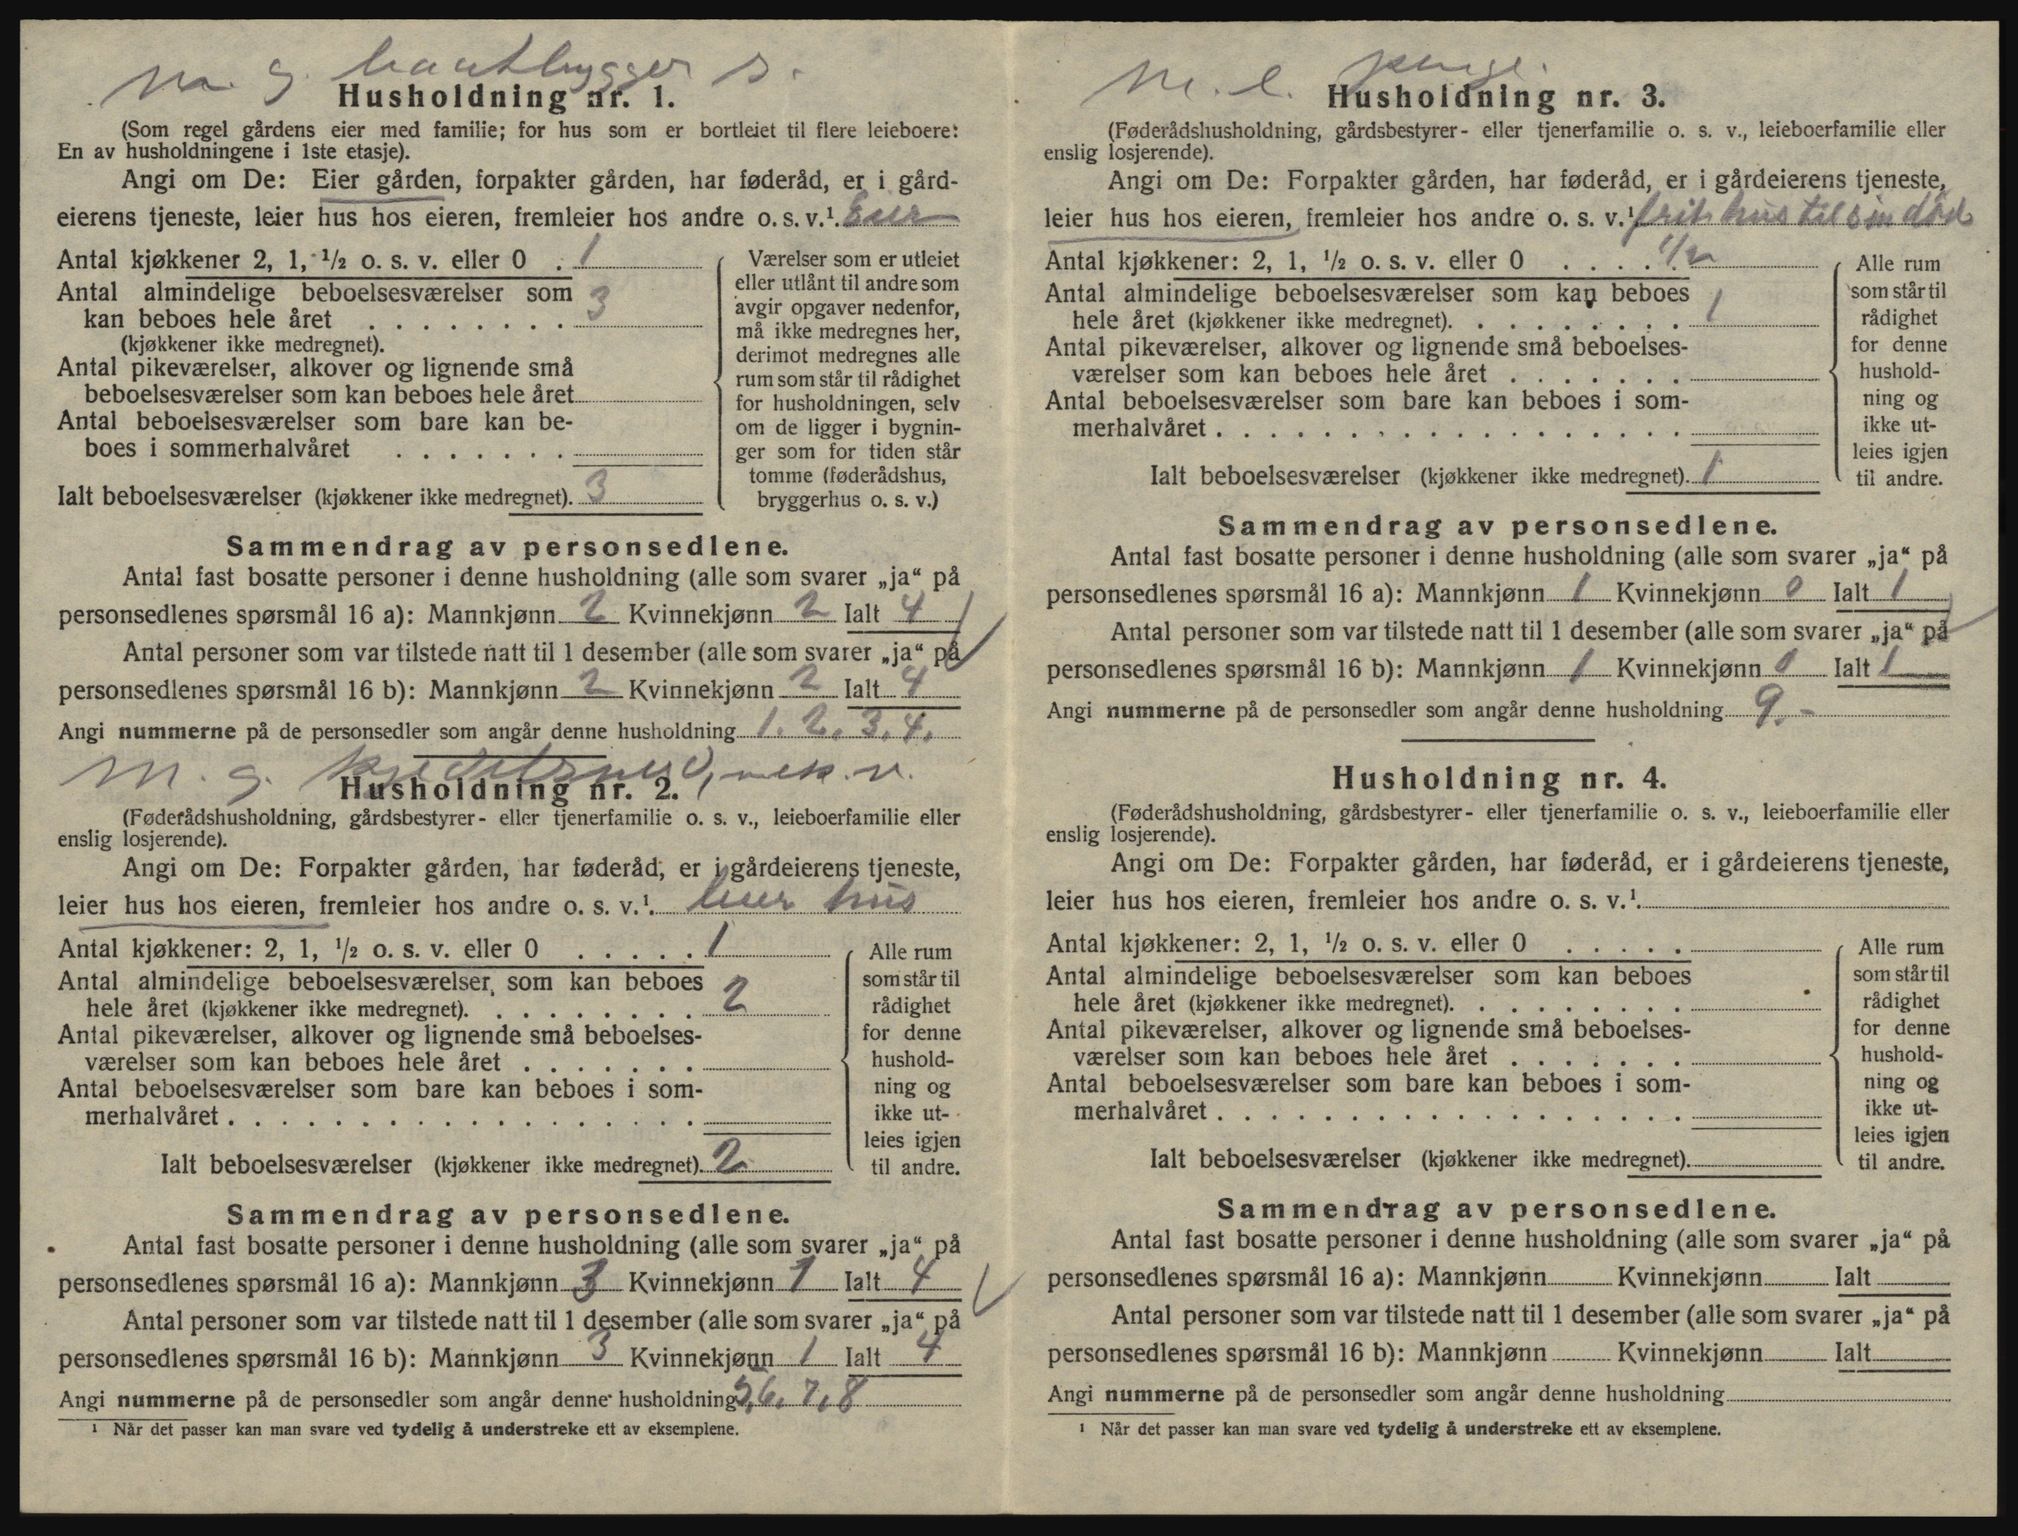 m. g. baatbygger s.
Husholdning nr. 1.
(Som regel gårdens eier med familie; for hus som er bortleiet til flere leieboere:
En av husholdningene i 1ste etasje).
Angi om De: Eier gården, forpakter gården, har føderåd, er i gård-
eierens tjeneste, leier hus hos eieren, fremleier hos andre o. s. v.¹. Eier
Antal kjøkkener 2, 1, ½ o. s. v. eller 0 . 1
Antal almindelige beboelsesværelser som
kan beboes hele året . . . . . . . . 3
(kjøkkener ikke medregnet).
Antal pikeværelser, alkover og lignende små
beboelsesværelser som kan beboes hele året
Antal beboelsesværelser som bare kan be-
boes i sommerhalvåret . . . . . . .
Ialt beboelsesværelser (kjøkkener ikke medregnet). 3
Værelser som er utleiet
eller utlånt til andre som
avgir opgaver nedenfor,
må ikke medregnes her,
derimot medregnes alle
rum som står til rådighet
for husholdningen, selv
om de ligger i bygnin-
ger som for tiden står
tomme (føderådshus,
bryggerhus o. s. v.)
Sammendrag av personsedlene.
Antal fast bosatte personer i denne husholdning (alle som svarer „ja“ på
personsedlenes spørsmål 16 a): Mannkjønn 2 Kvinnekjønn 2 Ialt 4
Antal personer som var tilstede natt til 1 desember (alle som svarer „ja“ på
personsedlenes spørsmål 16 b): Mannkjønn 2 Kvinnekjønn 2 Ialt 4
Angi nummerne på de personsedler som angår denne husholdning 1. 2. 3. 4.
m. g.
Husholdning nr. 2.
(Føderådshusholdning, gårdsbestyrer- eller tjenerfamilie o. s. v., leieboerfamilie eller
enslig losjerende).
Angi om De: Forpakter gården, har føderåd, er i gårdeierens tjeneste,
leier hus hos eieren, fremleier hos andre o. s. v.¹. leier hus
Antal kjøkkener: 2, 1, ½ o. s. v. eller 0 . . . . . 1
Antal almindelige beboelsesværelser som kan beboes
hele året (kjøkkener ikke medregnet). . . . . . . . . 2
Antal pikeværelser, alkover og lignende små beboelses-
værelser som kan beboes hele året . . . . . . .
Antal beboelsesværelser som bare kan beboes i som-
merhalvåret . . . . . . . . . . . . . . . . . .
Ialt beboelsesværelser (kjøkkener ikke medregnet). 2
Alle rum
som står til
rådighet
for denne
hushold-
ning og
ikke ut-
leies igjen
til andre.
Sammendrag av personsedlene.
Antal fast bosatte personer i denne husholdning (alle som svarer „ja“ på
personsedlenes spørsmål 16 a): Mannkjønn 3 Kvinnekjønn 1 Ialt 4
Antal personer som var tilstede natt til 1 desember (alle som svarer „ja“ på
personsedlenes spørsmål 16 b): Mannkjønn 3 Kvinnekjønn 1 Ialt 4
Angi nummerne på de personsedler som angår denne husholdning 5, 6, 7, 8
¹ Når det passer kan man svare ved tydelig å understreke ett av eksemplene.
m. l.
Husholdning nr. 3.
(Føderådshusholdning, gårdsbestyrer- eller tjenerfamilie o. s. v., leieboerfamilie eller
enslig losjerende).
Angi om De: Forpakter gården, har føderåd, er i gårdeierens tjeneste,
leier hus hos eieren, fremleier hos andre o. s. v.¹ frit hus til sin død
Antal kjøkkener: 2, 1, ½ o. s. v. eller 0 . . . . . 1/2
Antal almindelige beboelsesværelser som kan beboes
hele året (kjøkkener ikke medregnet). . . . . . . . . 1
Antal pikeværelser, alkover og lignende små beboelses-
værelser som kan beboes hele året . . . . . . .
Antal beboelsesværelser som bare kan beboes i som-
merhalvåret . . . . . . . . . . . . . . . . . .
Ialt beboelsesværelser (kjøkkener ikke medregnet). 1
Alle rum
som står til
rådighet
for denne
hushold-
ning og
ikke ut-
leies igjen
til andre.
Sammendrag av personsedlene.
Antal fast bosatte personer i denne husholdning (alle som svarer „ja“ på
personsedlenes spørsmål 16 a): Mannkjønn 1 Kvinnekjønn 0 Ialt 1
Antal personer som var tilstede natt til 1 desember (alle som svarer „ja“ på
personsedlenes spørsmål 16 b): Mannkjønn 1 Kvinnekjønn 0 Ialt 1
Angi nummerne på de personsedler som angår denne husholdning 9.-
Husholdning nr. 4.
(Føderådshusholdning, gårdsbestyrer- eller tjenerfamilie o. s. v., leieboerfamilie eller
enslig losjerende).
Angi om De: Forpakter gården, har føderåd, er i gårdeierens tjeneste,
leier hus hos eieren, fremleier hos andre o. s. v.¹.
Antal kjøkkener: 2, 1, ½ o. s. v. eller 0 . . . . .
Antal almindelige beboelsesværelser som kan beboes
hele året (kjøkkener ikke medregnet). . . . . . . . .
Antal pikeværelser, alkover og lignende små beboelses-
værelser som kan beboes hele året . . . . . . .
Antal beboelsesværelser som bare kan beboes i som-
merhalvåret . . . . . . . . . . . . . . . . . .
Ialt beboelsesværelser (kjøkkener ikke medregnet).
Alle rum
som står til
rådighet
for denne
hushold-
ning og
ikke ut-
leies igjen
til andre.
Sammendrag av personsedlene.
Antal fast bosatte personer i denne husholdning (alle som svarer „ja“ på
personsedlenes spørsmål 16 a): Mannkjønn Kvinnekjønn Ialt
Antal personer som var tilstede natt til 1 desember (alle som svarer „ja“ på
personsedlenes spørsmål 16 b): Mannkjønn Kvinnekjønn Ialt
Angi nummerne på de personsedler som angår denne husholdning
¹ Når det passer kan man svare ved tydelig å understreke ett av eksemplene.